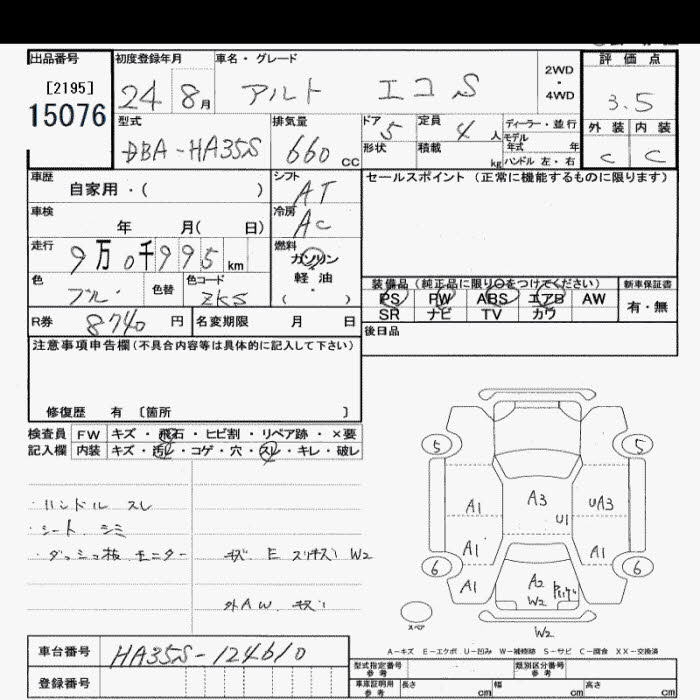 出品番号 初度登録年月 車名・グレード 2WD・4WD 評価点
[2195]
15076 24 8月 アルト エコS 3.5
型式 排気量 ドア 定員 ディーラー・並行 外装 内装
DBA-HA35S 660cc 5 4人 モデル年式 年 C C
形状 積載 kg ハンドル 左・右
車歴 シフト セールスポイント (正常に機能するものに限ります)
自家用・( ) AT
車検 冷房
年 月( 日) AC
走行 燃料
9万0千995km ガソリン
軽油
( )
色 色替 色コード 装備品 (純正品に限り○をつけてください) 新車保証書
ブルー ZKS PS PW ABS エアB AW 有・無
SR ナビ TV カワ
R券 8740円 名変期限 月 日 後日品
注意事項申告欄(不具合内容等は具体的に記入して下さい)
修復歴 有 [箇所 ]
検査員 FW キズ・飛石・ヒビ割・リペア跡・×要
記入欄 内装 キズ・汚レ・コゲ・穴・スレ・キレ・破レ
5 5
・ハンドル スレ
・シート シミ
・ダッシュ板 モニター キズ E スリキズ W2
外AW キズ
A1 A3 UA3
U1
A1 A1
6 6
A1 A2
W2
スペア
W2
A-キズ E-エクボ U-凹み W-補修跡 S-サビ C-腐食 XX-交換済
車台番号 HA35S-124610
型式指定番号 参考 類別区分番号 参考
登録番号 車庫証明用 参考 長さ cm 幅 cm 高さ cm